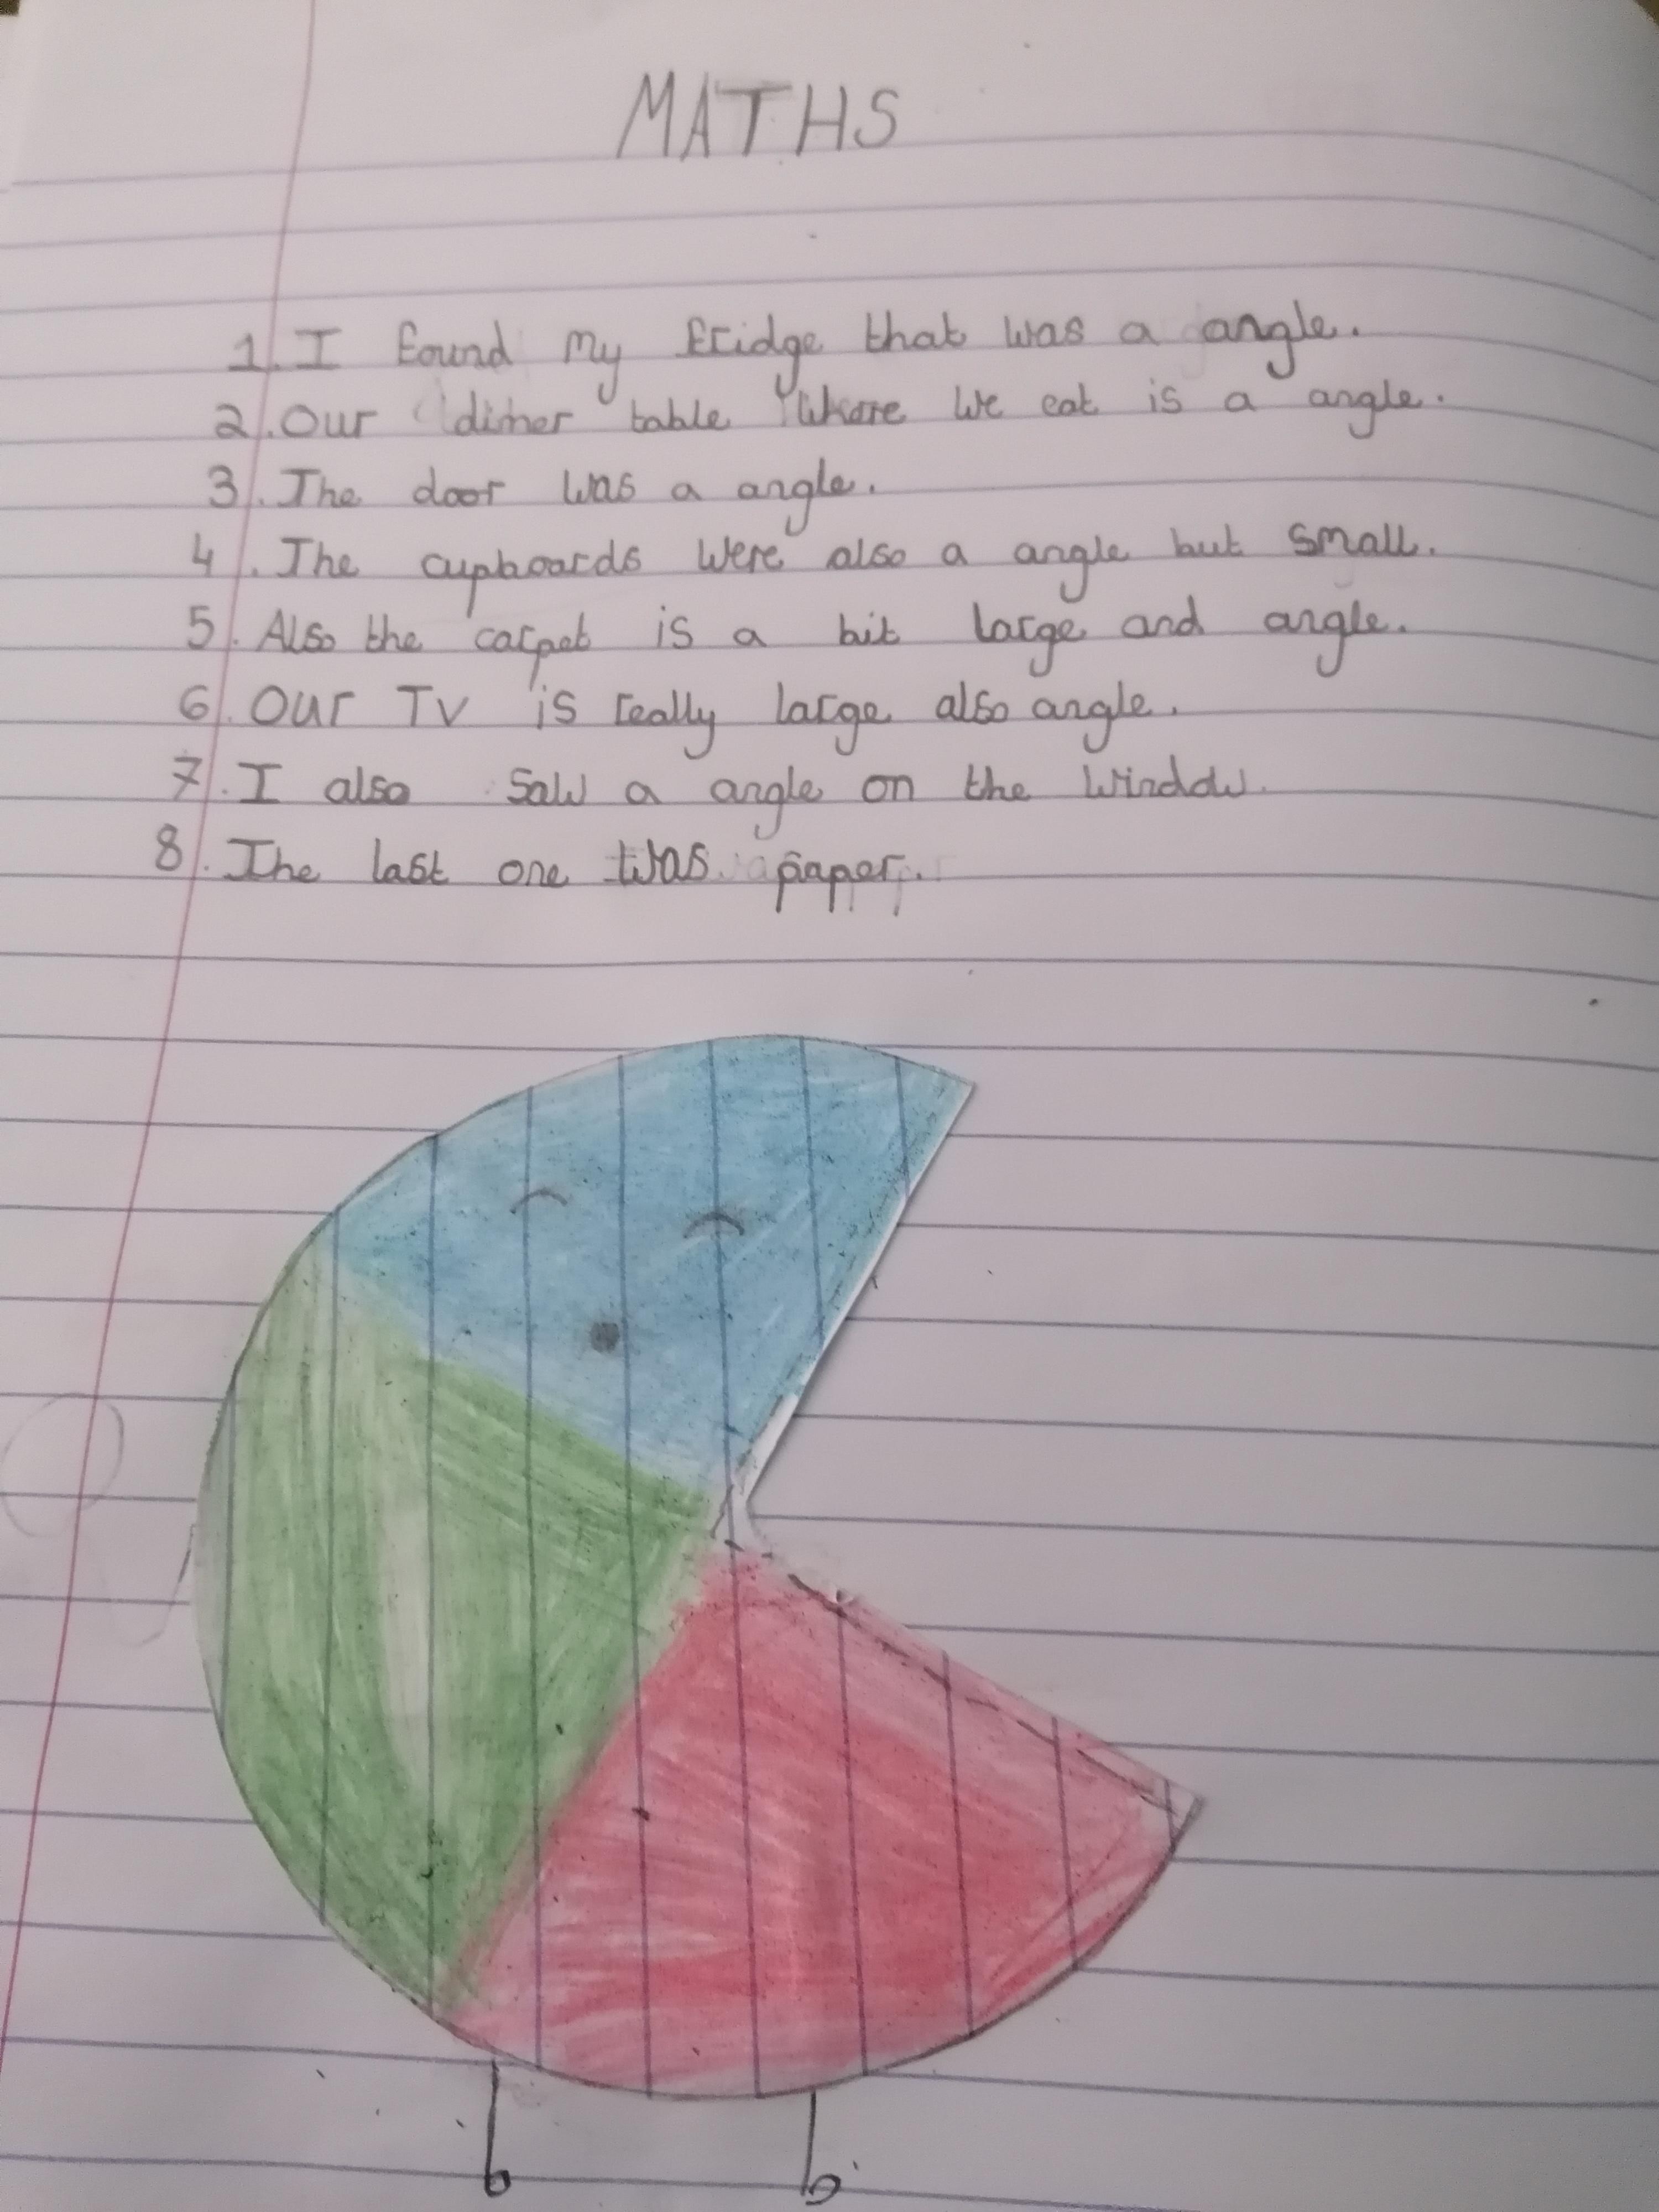 MATHS
1. I found my fridge that was a angle.
2. Our dinner table where we eat is a angle.
3. The door was a angle.
4. The cupboards were also a angle but small.
5. Also the carpet is a bit large and angle.
6. Our TV is really large also angle.
7. I also saw a angle on the window.
8. The last one was paper.